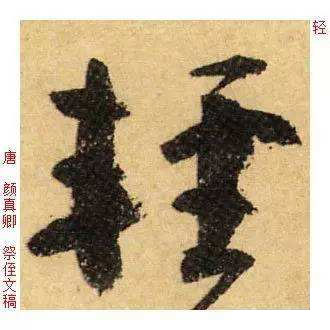 轻
輕
唐 颜真卿 祭侄文稿